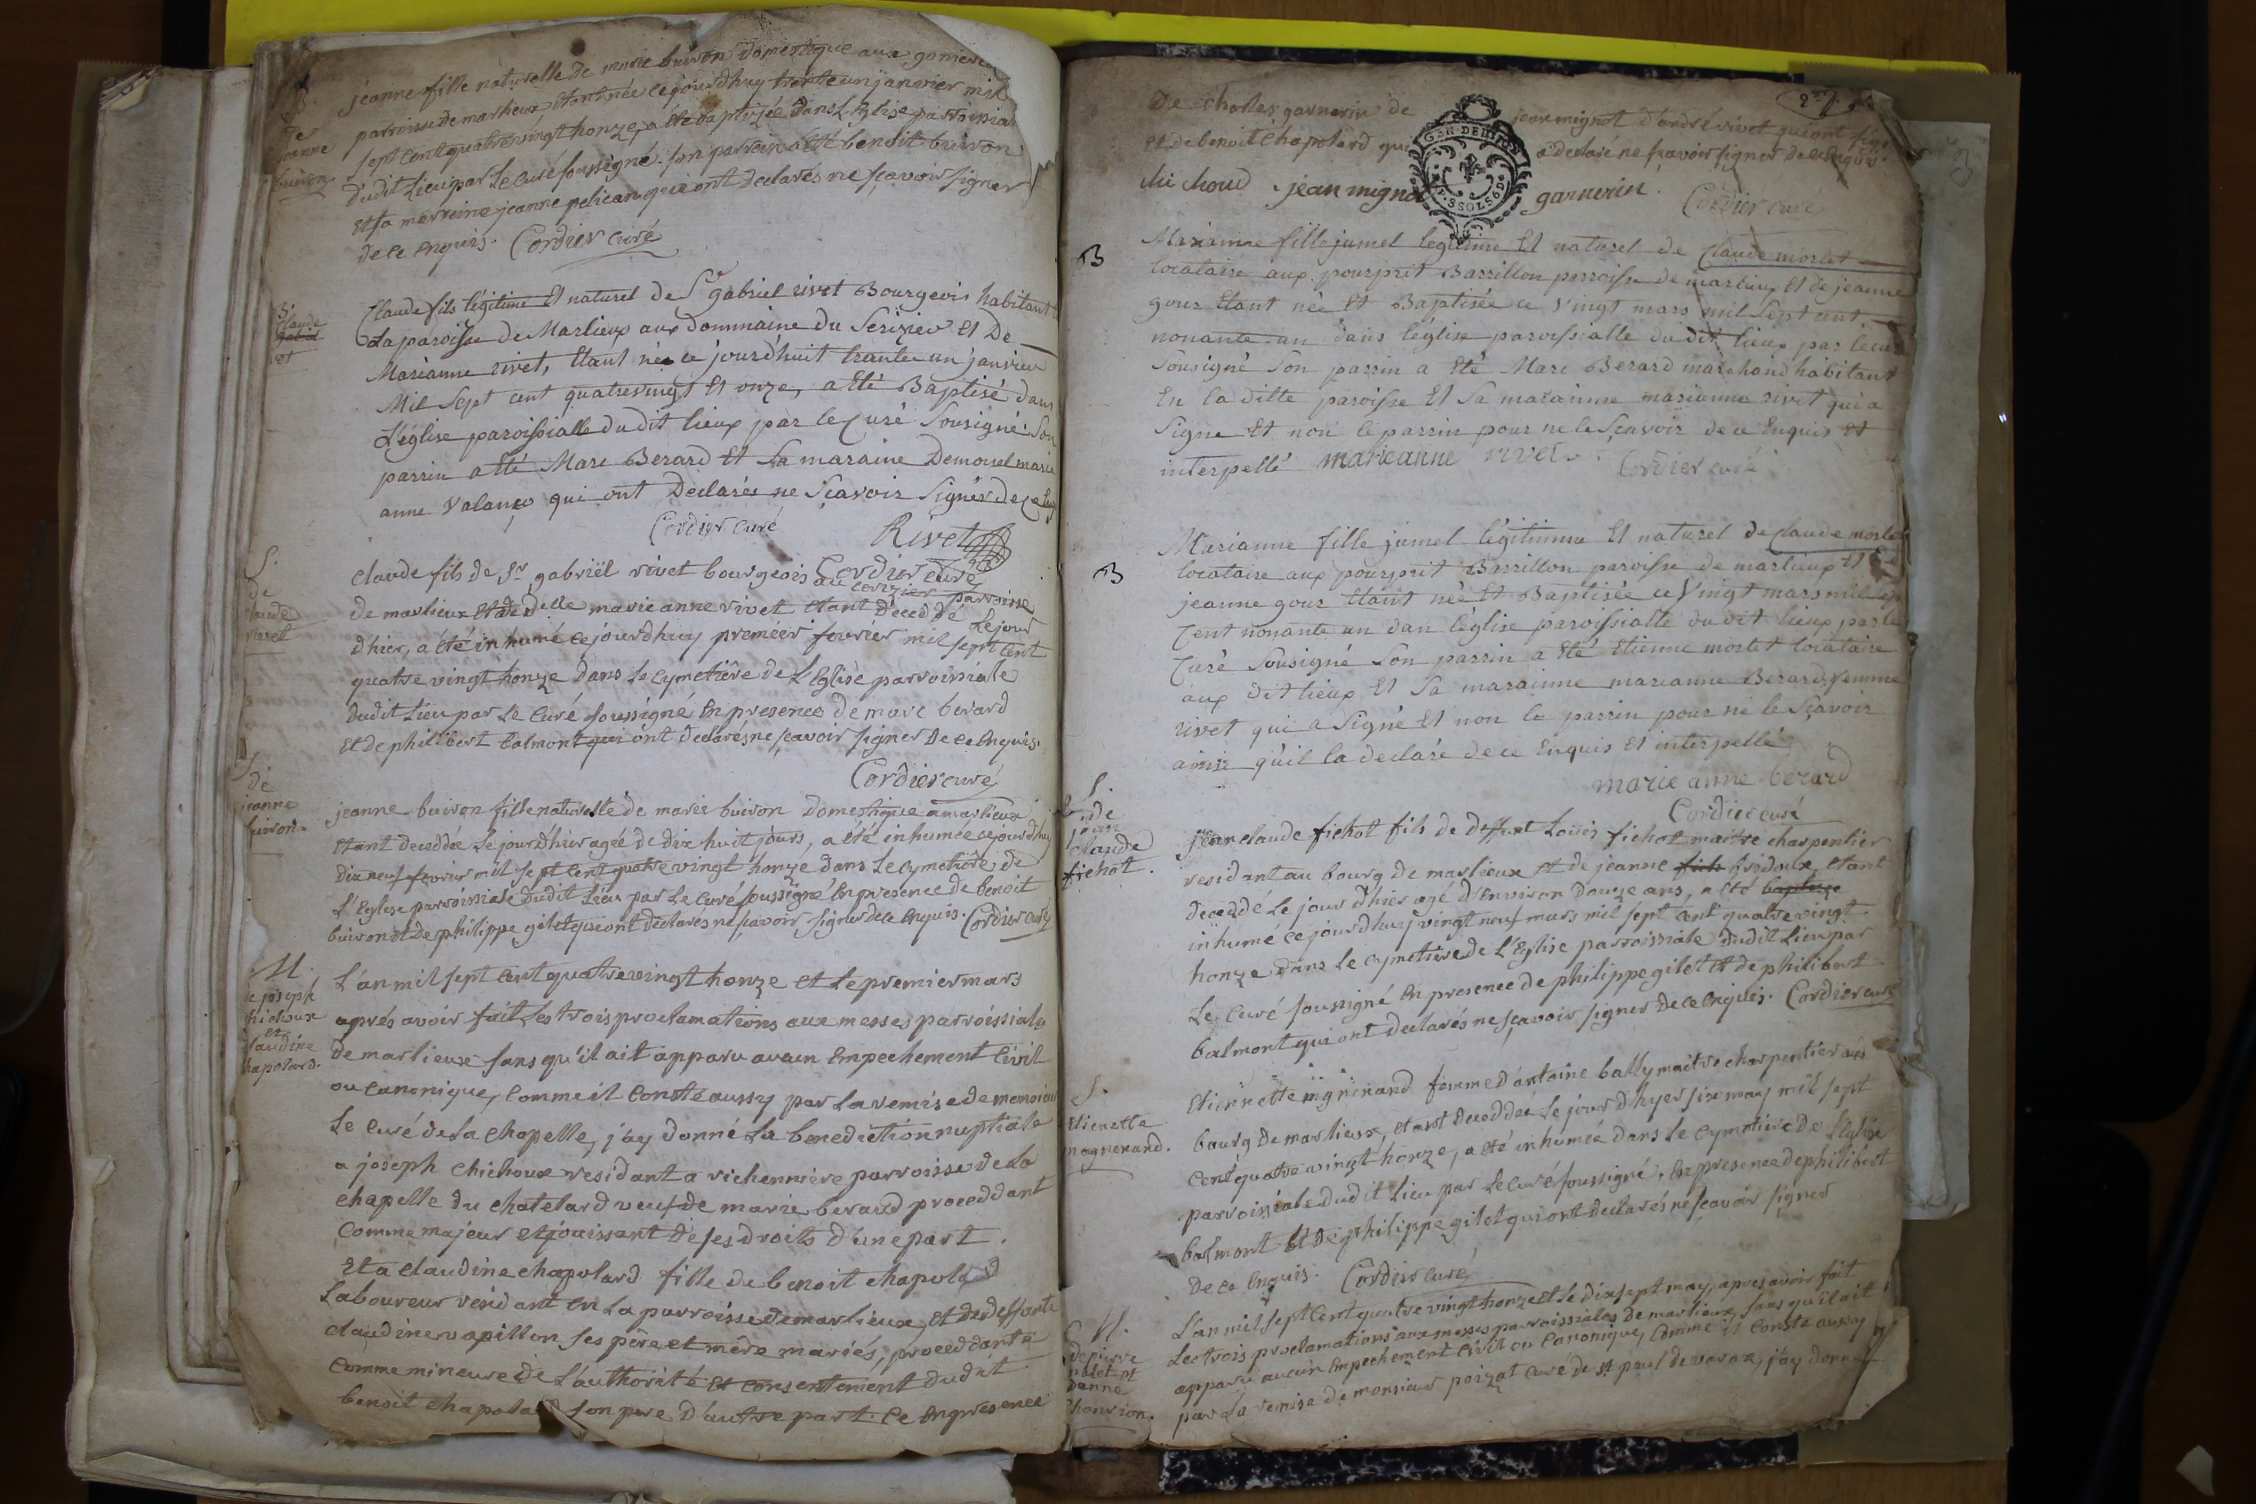 jeanne fille naturelle de marie buiron domestique aux
parroisse de marlieux, etant née cejourdhuy trente un janvier mil
sept cent quatre vingt honze, a été baptizée dans L'Eglise parroissia
dudit Lieu par Le Curé soussigné. son parrein a été benoit buiron
et sa marreine jeanne pelican qui ont declarés ne sçavoir signer
de ce enquis. Cordier curé
de
jeanne
buiron.
Claude fils légitime Et naturel de Sr gabriel rivet Bourgeois habitant
La paroisse de Marlieux aux dommaine du Serizier Et De
Marianne rivet, Etant né ce jourd'huit trante un janvier
Mil Sept cent quatrevingt Et onze, a Eté Baptisé dans
L'église paroissialle du dit lieux par le Curé Sousigné. Son
parrin a Eté Marc Berard Et Sa maraine Demoisel marie
anne Valanço qui ont Declarés ne Sçavoir Signér de ce
Cordier curé
Rivet
Cordier curé
Claude
claude fils de Sr gabriël rivet bourgeois au cerizier parroisse
de marlieux et de delle marie anne rivet etant deceddé Lejour
dhier, a été inhumé cejourdhuy preméer fevrier mil sept cent
quatre vingt honze dans Le Cymetière de L'Eglise parroissiale
dudit Lieu par Le Curé soussigné En presence de marc berard
Et de philibert balmont qui ont declarés ne sçavoir signer De ce Enquis.
Cordier curé
S.
de
claude
rivet
jeanne buiron fille naturelle de marie buiron domestique a marlieux
etant deceddée Lejourdhier agée de dix huit jours, a été inhumée cejourdhuy
dix neuf fevrier mil sept cent quatre vingt honze dans Le Cymetiere de
L'Eglise parroissiale dudit Lieu par Le Curé soussigné En presence de benoit
buiron et de philippe gilet qui ont declarés ne sçavoir signer de ce Enquis. Cordier curé
S.
de
jeanne
buiron.
L'an mil sept cent quatre vingt honze et Le premier mars
aprés avoir fait Les trois proclamations aux messes parroissiales
de marlieux sans qu'il ait apparu aucun Empechement Civil
ou canonique, comme il conste aussy par La remise de
Le Curé de La chapelle, j'ay donné La benediction nuptiale
a joseph chichoux residant a richenniere parroisse de La
chapelle du chatelard veuf de marie beraud proceddant
comme majeur et jouissant de ses droits d'une part.
Et a claudine chapolard fille de benoit chapolard
Laboureur residant en La parroisse de marlieux, et de deffunte
claudine vapillon ses père et mère mariés, proceddante
comme mineure de L'authorité et consentement dudit
benoit chapolard son pere d'autre part. ce en presence
M.
de joseph
chichoux
et
claudine
chapolard.
de charles garnerin de jean mignot d'andré rivet qui ont signé
et de benoit chapolard qui a declaré ne sçavoir signer de ce enquis.
chi choud jean mignot garnerin.
Cordier curé
GEN. DE DIJON
2.SSOLS6D.
B
Marianne fille jumel legitime Et naturel de Claude morlet
locataire aux pourprit Barrillon parroisse de marlieux Et de jeanne
gour Etant née Et Baptisée ce Vingt mars mil Sept cent
nonante un dans l'église paroissialle du dit lieux par lecuré
Sousigné Son parrin a Eté Marc Berard marchand habitant
En la ditte paroisse Et Sa marainne marianne rivet qui a
Signe Et non le parrin pour ne le Sçavoir de ce Enquis et
interpellé marieanne rivet. Cordier curé
B
Marianne fille jumel légitimme Et naturel de Claude morlet
locataire aux pourprit Barrillon paroisse de marlieux Et de
jeanne gour Etant née Et Baptisée ce Vingt mars mil sept
Cent nonante un dan l'église paroissialle du dit lieux par le
Curé Sousigné Son parrin a Eté Etienne morlet locataire
aux dit lieux Et Sa marainne marianne Berard femme
rivet qui a Signé Et non le parrin pour ne le Sçavoir
ainsi qu'il la declaré de ce Enquis Et interpellé
marie anne berard
Cordier curé
jean claude fichot fils de deffunt Loüis fichot maitre charpentier
residant au bourg de marlieux et de jeanne fridoux, etant
deceddé Le jour d'hier agé d'environ douze ans, a été baptizé
inhumé ce jourdhuy vingt neuf mars mil sept cent quatre vingt
honze dans Le Cymetiere de L'Eglise parroissiale dudit Lieu par
Le Curé soussigné En presence de philippe gilet et de philibert
balmont qui ont declarés ne sçavoir signer de ce Enquis. Cordier curé
S.
de
jean
claude
fichot.
Etiennette magninand femme d'antoine bally maitre charpentier au
bourg de marlieux, etant deceddée Le jour d'hyer six may mil sept
cent quatre vingt honze, a été inhumée dans Le Cymetiere de L'Eglise
parroissiale dudit Lieu par Le Curé soussigné, En presence de philibert
balmont Et de philippe gilet qui ont declarés ne sçavoir signer
De ce Enquis. Cordier curé
S.
Etienette
magnenand.
L'an mil sept cent quatre vingt honze et Le dix sept may, aprés avoir fait
Les trois proclamations aux messes parroissiales de marlieux, sans qu'il ait
apparu aucun Empechement civil ou canonique, comme il conste aussy
par La remise de monsieur poizat curé de st paul de varax, j'ay donné
M.
de pierre